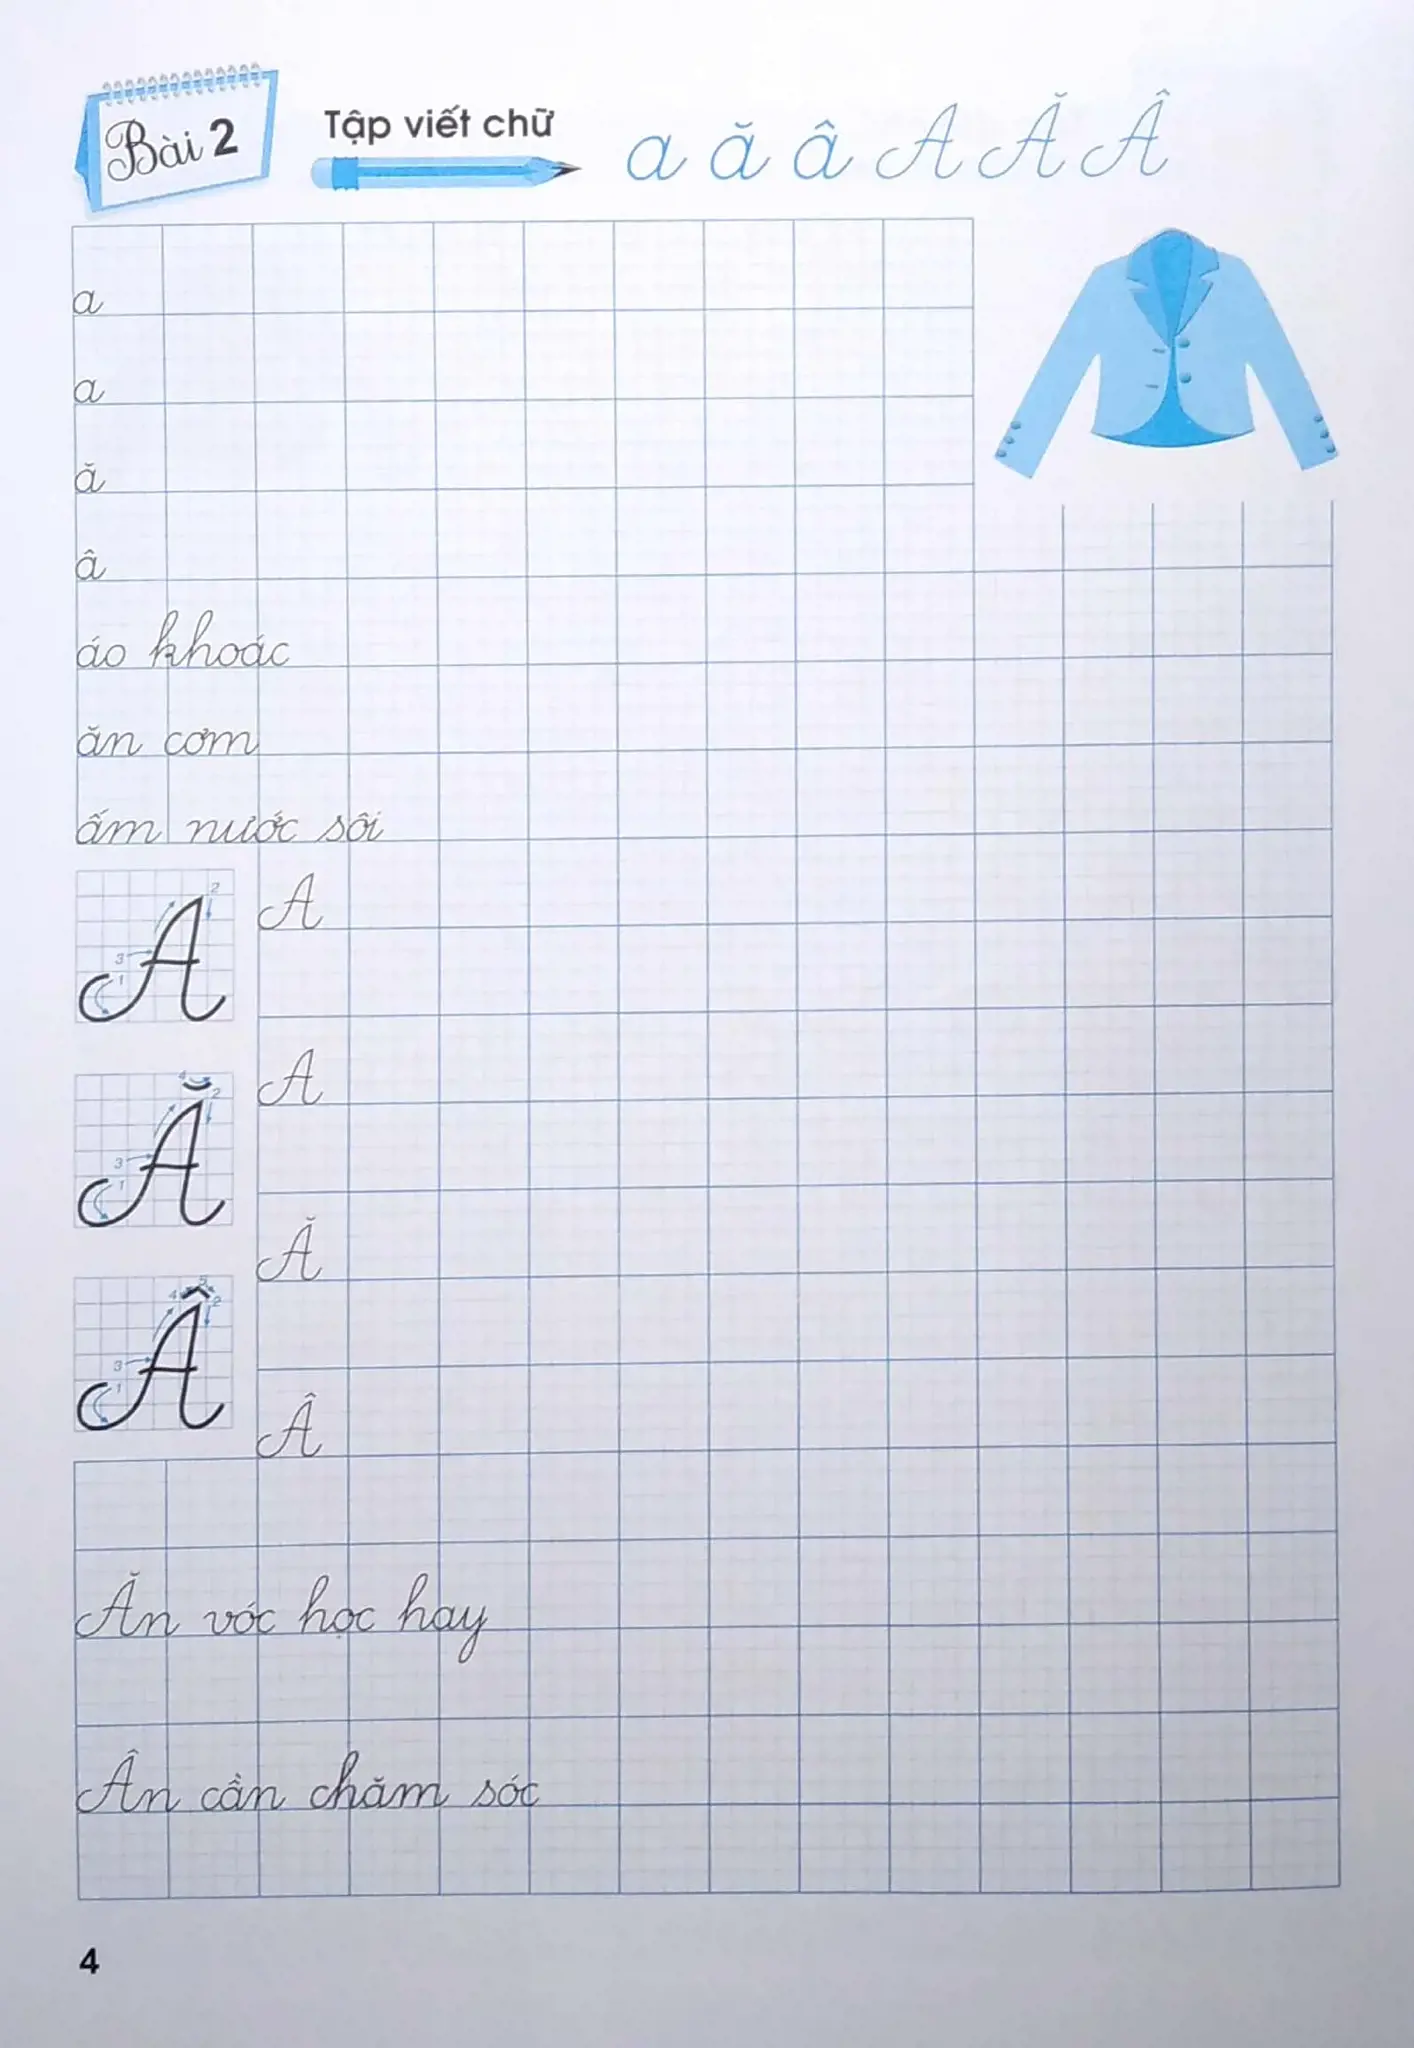 Bài 2
Tập viết chữ
a ă â A Ă Â
a
a
ă
â
áo khoác
ăn cơm
ấm nước sôi
A
1 2 3
A
A
Ă
1 2 3 4
Ă
Â
1 2 3 4 5
Â
Ăn vóc học hay
Ân cần chăm sóc
4